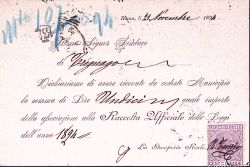 Roma, 21 Novembre 1894
Signor Sindaco
di Vezzago
Dichiariamo di avere ricevuto da codesto Municipio
la somma di Lire Undici quale importo
della associazione alla Raccolta Ufficiale delle Leggi
dell'anno 1894
La Stamperia Reale